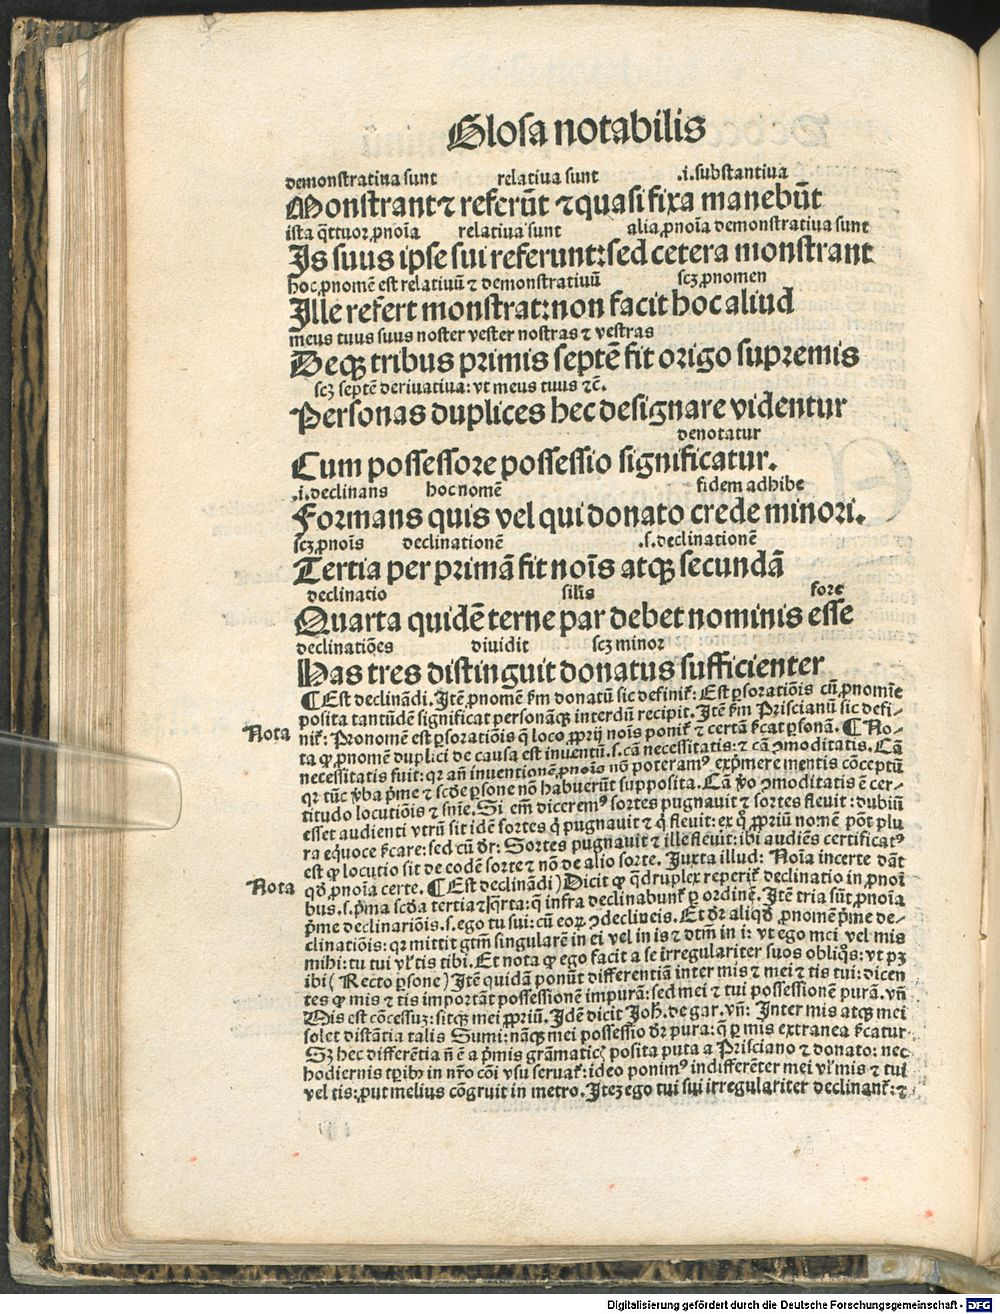 Glosa notabilis
demonstratiua sunt relatiua sunt .i.substantiua
Monstrant ⁊ referūt ⁊ quasi fixa manebūt
ista q̄ttuor ꝓnoīa relatiua sunt alia ꝓnoīa demonstratiua sunt
Is suus ipse sui referunt: sed cetera monstrant
hoc ꝓnomē est relatiuū ⁊ demonstratiuū scꝫ ꝓnomen
Ille refert monstrat: non facit hoc aliud
meus tuus suus noster vester nostras ⁊ vestras
Deqꝫ tribus primis septē fit origo supremis
scꝫ septē deriuatiua: vt meus tuus ⁊c̄.
Personas duplices hec designare videntur
denotatur
Cum possessore possessio significatur.
.i.declinans hoc nomē fidem adhibe
Formans quis vel qui donato crede minori.
scꝫ ꝓnoīs declinationē .s.declinationē
Tertia per primā fit noīs atqꝫ secundā
declinatio sil̄is fore
Quarta quidē terne par debet nominis esse
declinatiōes diuidit scꝫ minor
Has tres distinguit donatus sufficienter
¶ Est declinādi. Itē ꝓnomē ẜm donatū sic definiƭ: Est ꝑs orōtiōis cū ꝓnomīe
posita tantūdē significat personāqꝫ interdū recipit. Itē ẜm Priscianū sic defi-
Nota
niƭ: Pronomē est ꝑs oratiōis q̄ loco ꝓprij nōis poniƭ ⁊ certā ẜcat ꝑsonā. ¶ No-
ta ꝙ ꝓnomē duplici de causa est inuentū .s. cā necessitatis: ⁊ cā ꝯmoditatis. Cā
necessitatis fuit: qꝛ an̄ inuentionē ꝓnoīs nō poteramꝰ exp̄mere mentis cōceptū
qꝛ tūc v̄ba p̄me ⁊ scd̄e ꝑsone nō habuerūt supposita. Cā v̄o ꝯmoditatis ē cer-
titudo locutiōis ⁊ sn̄ie. Si em̄ diceremꝰ sortes pugnauit ⁊ sortes fleuit: dubiū
esset audienti vtrū sit idē sortes q̇ pugnauit ⁊ q̇ fleuit: ex q̊ ꝓpriū nomē pōt plu
ra equoce ẜcare: sed cū dr̄: Sortes pugnauit ⁊ ille fleuit: ibi audiēs certificatꝰ
est ꝙ locutio sit de eodē sorte ⁊ nō de alio sorte. Iuxta illud: Noīa incerte dāt
Nota
qd̄ ꝓnoīa certe. ¶ Est declinādi) Dicit ꝙ q̄druplex reperiƭ declinatio in ꝓnoī
bus .s. p̄ma scd̄a tertia ⁊ q̄rta: q̄ infra declinabunƭ ꝑ ordinē. Itē tria sūt ꝓnoīa
p̄me declinatiōis .s. ego tu sui: cū eoꝝ ꝯdeclineis. Et dr̄ aliqd̄ ꝓnomē p̄me de-
clinatiōis: qꝛ mittit gt̄m singularē in ei vel in is ⁊ dt̄m in i: vt ego mei vel mis
mihi: tu tui vl̓ tis tibi. Et nota ꝙ ego facit a se irregulariter suos obliq̊s: vt pꝫ
ibi (Recto ꝑsone) Itē quidā ponūt differentiā inter mis ⁊ mei ⁊ tis tui: dicen
tes ꝙ mis ⁊ tis importāt possessionē impurā: sed mei ⁊ tui possessionē purā. vn̄
Dis est cōcessuꝫ: sitqꝫ mei ꝓpriū. Idē dicit Joh̄. de gar. vn̄: Inter mis atqꝫ mei
solet distātia talis Sumi: nāqꝫ mei possessio dr̄ pura: q̄ ꝑ mis extranea ẜcatur
Sꝫ hec differētia n̄ ē a p̄mis grāmaticꝭ posita puta a Prisciano ⁊ donato: nec
hodiernis tꝑibꝰ in nr̄o cōi vsu seruaƭ: ideo ponimꝰ indifferēter mei vl̓ mis ⁊ tui
vel tis: ꝓut melius cōgruit in metro. Iteꝫ ego tui sui irregulariter declinanƭ: ⁊
Digitalisierung gefördert durch die Deutsche Forschungsgemeinschaft - DFG